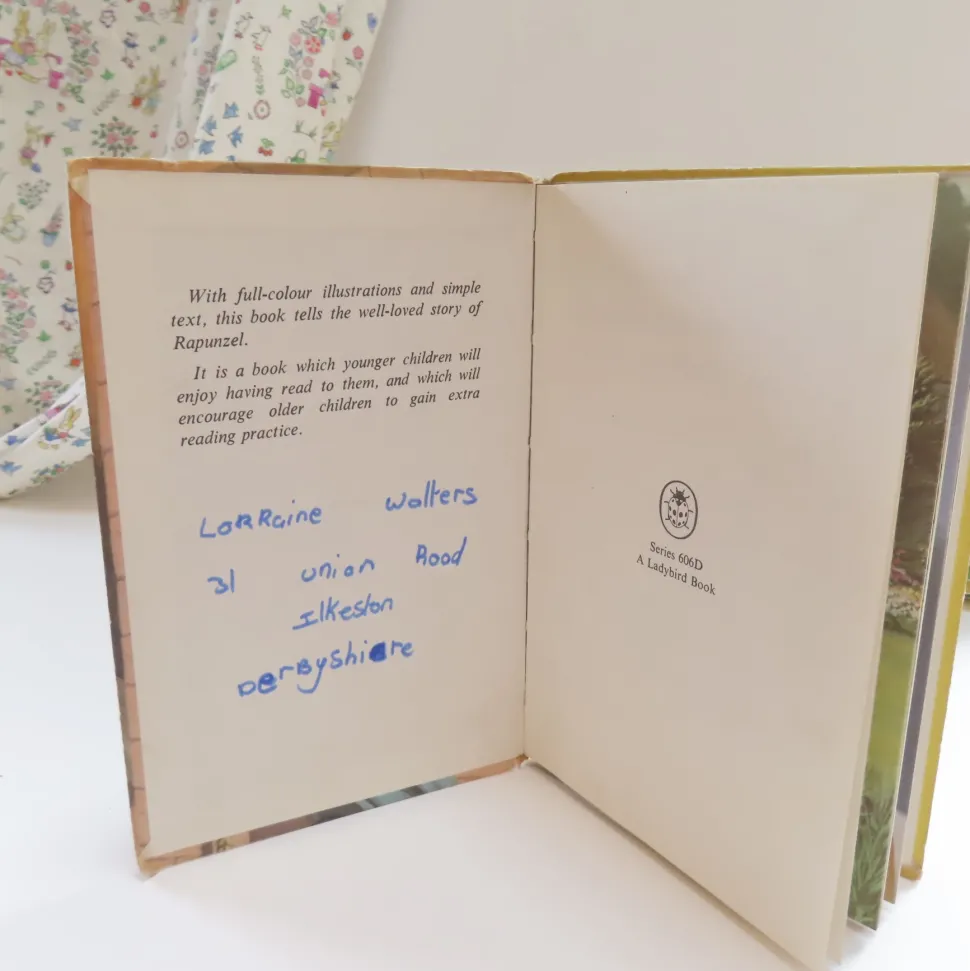 With full-colour illustrations and simple
text, this book tells the well-loved story of
Rapunzel.
It is a book which younger children will
enjoy having read to them, and which will
encourage older children to gain extra
reading practice.
LoRRaine Walters
31 union Road
Ilkeston
DerByshiere
Series 606D
A Ladybird Book